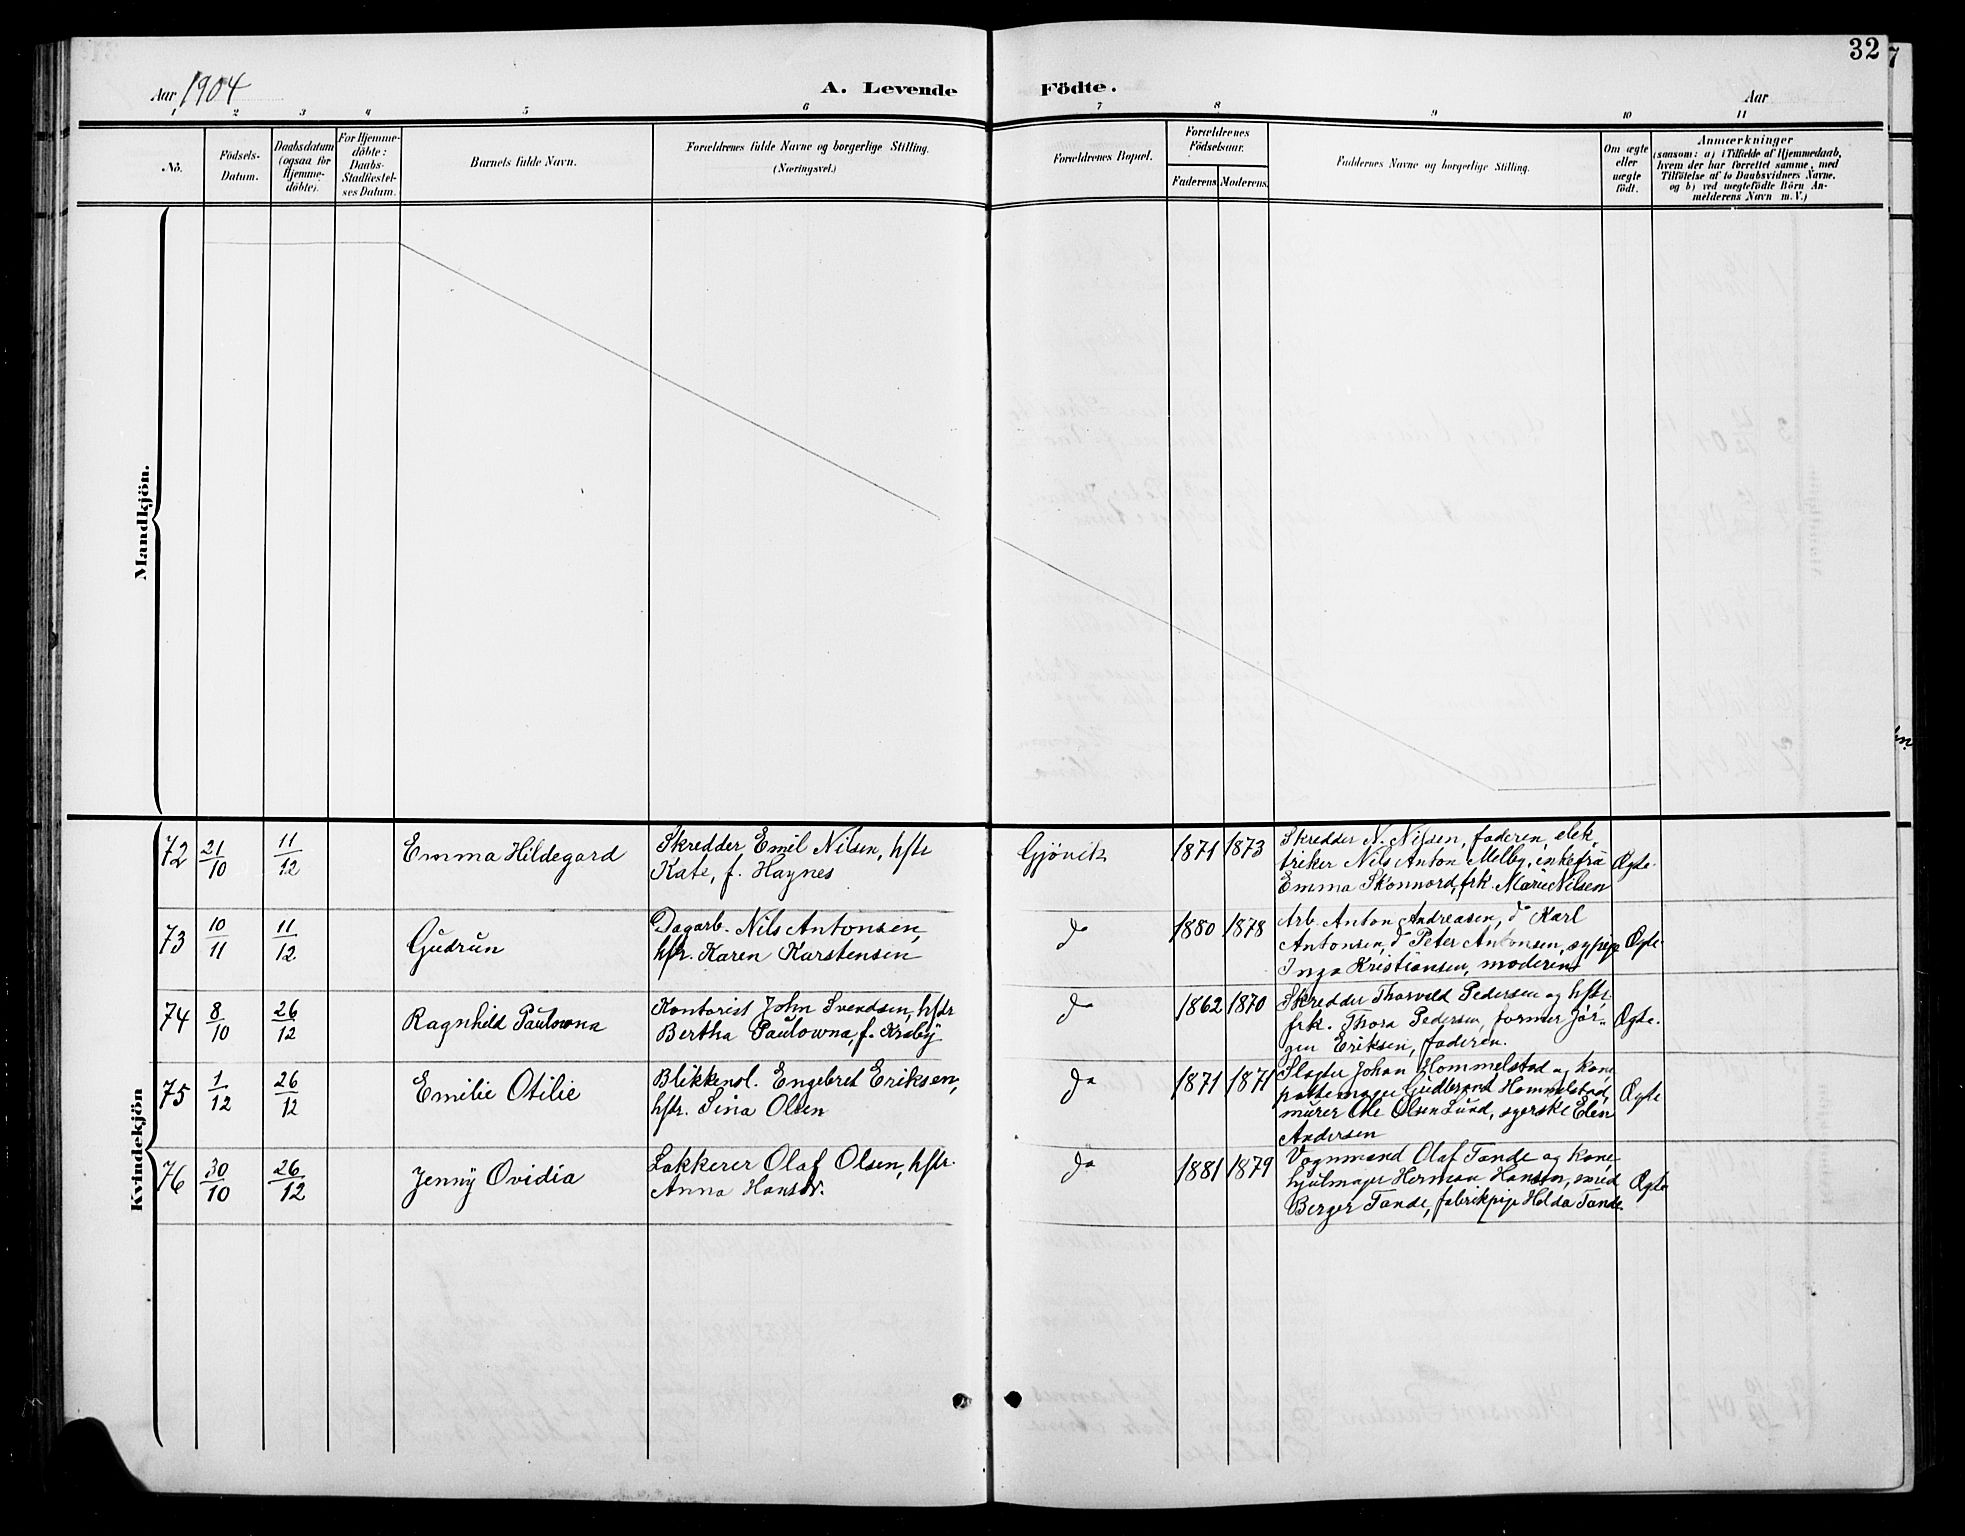 32
Aar 1904
A. Levende Födte.
Aar
1 2 3 4 5 6 7 8 9 10 11
No.
Födsels-
Datum.
Daabsdatum
(ogsaa for
Hjemme-
döbte).
For Hjemme-
döbte:
Daabs-
Stadfæstel-
ses Datum.
Barnets fulde Navn.
Forældrenes fulde Navne og borgerlige Stilling.
(Næringsvei.)
Forældrenes Bopæl.
Forældrenes
Födselsaar.
Faderens. Moderens.
Faddernes Navne og borgerlige Stilling.
Om ægte
eller
uægte
født.
Anmærkninger
(saasom: a) i Tilfælde af Hjemmedaab,
hvem der har forrettet samme, med
Tilföielse af to Daabsvidners Navne.
og b) ved uægtefödte Börn An-
melderens Navn m. V.)
Mandkjön.
Kvindekjön
72 21/10 11/12 Emma Hildegard
Skredder Emil Nilsen, hstr
Kate, f. Haynes
Gjövik 1871 1873
Skredder N. Nilsen, faderen, elek-
triker Nils Anton Melby, enkefru
Emma Skonnord, frk. Marie Nilsen
Ægte.
73 10/11 11/12 Gudrun
Dagarb. Nils Antonsen,
hstr. Karen Karstensen
do 1880 1878
Arb. Anton Andreasen, do Karl
Antonsen, do Peter Antonsen, sypige
Inga Kristiansen, moderen
Ægte.
74 8/10 26/12 Ragnhild Paulowna
Kontorist John Svendsen, hstr
Bertha Paulowna, f. Kraby
do 1862 1870
Skredder Thorvald Pedersen og hstr
frk. Thora Pedersen, former Jör-
gen Eriksen, faderen.
Ægte.
75 1/12 26/12 Emilie Otilie
Blikkensl. Engebret Eriksen,
hstr. Sina Olsen
do 1871 1871
Slagter Johan Hommelstad og kone
pottemager Gudbrand Hommelstad,
murer Ole Olsen Lund, syerske Elen
Andersen
Ægte
76 30/10 26/12 Jenny Ovidia
Lakkerer Olaf Olsen, hstr.
Anna Hansdr.
do 1881 1879
Vognmand Olaf Tande og kone
hjulmager Herman Hansen, smed
Berger Tande, fabrikpige Holda Tande
Ægte